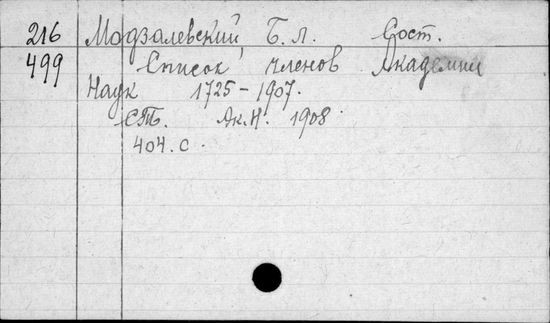 216 Модзалевский, Б. Л. Сост.
499 Список членов Академии
Наук 1725-1907.
СПб. Ак.Н. 1908.
404. с.